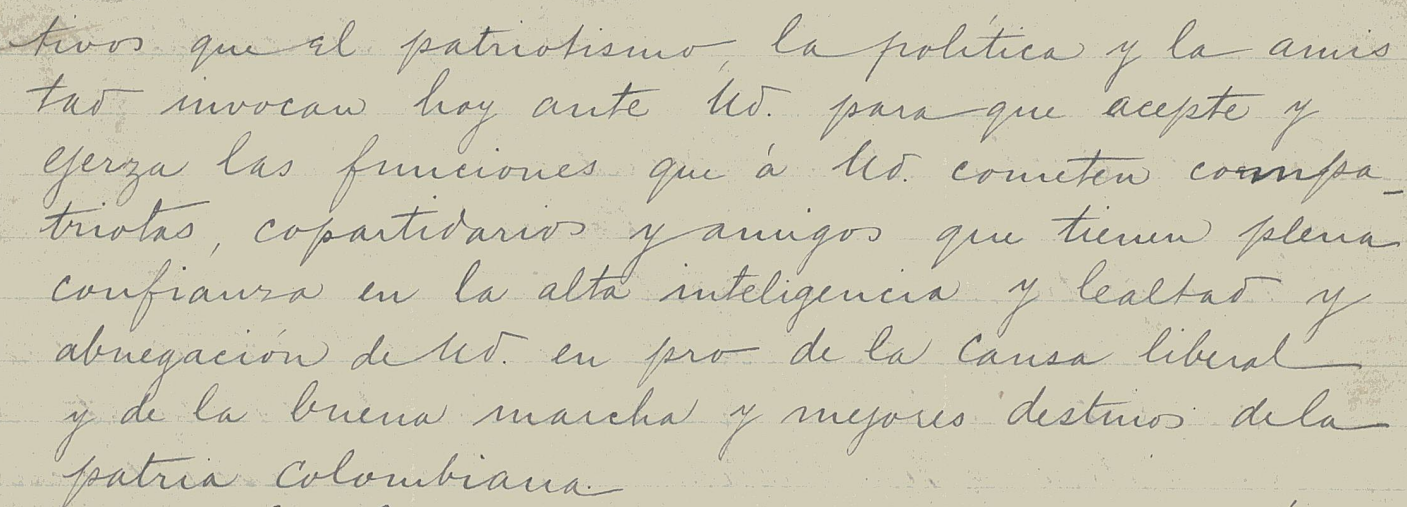 tivos que el patriotismo, la política y la amis
tad invocan hoy ante Ud. para que acepte y
ejerza las funciones que á Ud. cometen compa-
triotas, copartidarios y amigos que tienen plena
confianza en la alta inteligencia y lealtad y
abnegación de Ud. en pro de la causa liberal
y de la buena marcha y mejores destinos de la
patria colombiana.